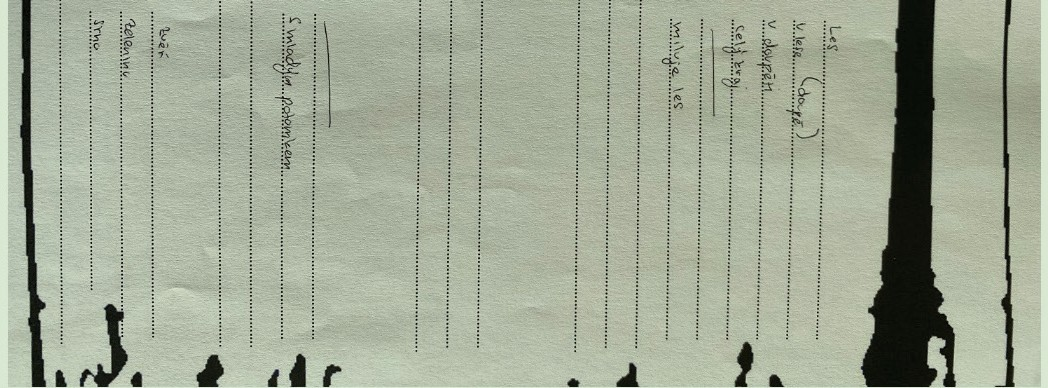 Les
v lese (doupě)
v doupěti
celý kraj
miluje les
s mladým potomkem
zvěř
zeleninu